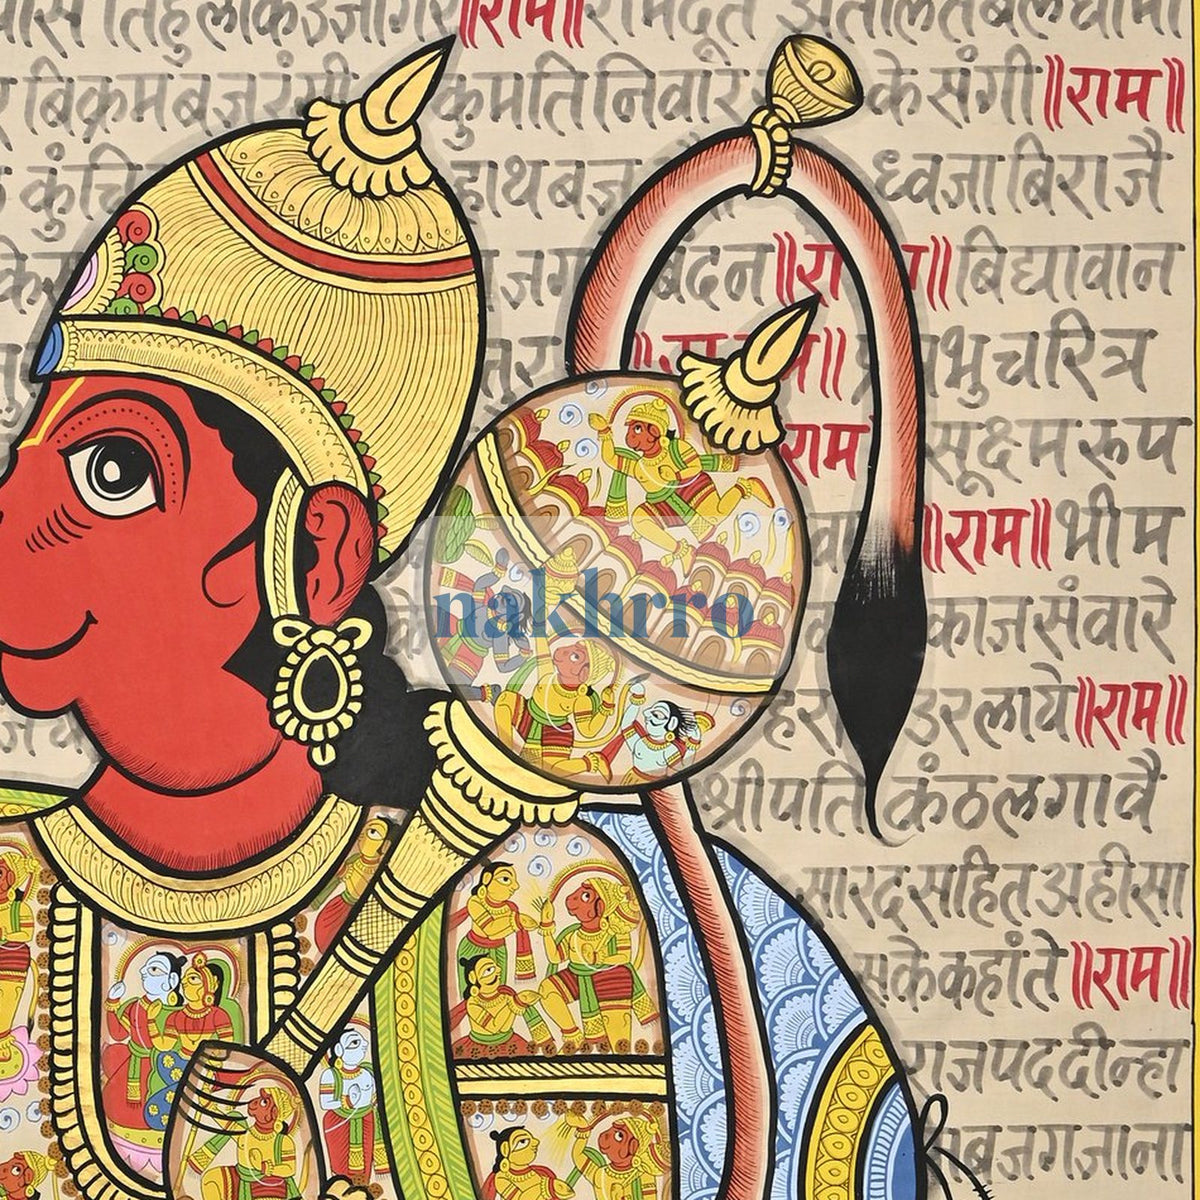 तिहुलोकउजागर॥राम॥रामदूत अतलितबलधामा
बिक्रमबजरंगी कुमतिनिवार केसंगी॥राम॥
कुंचि हाथबज्र ध्वजाबिराजै
जग बंदन॥रा ॥बिद्यावान
तुर प्रभुचरित्र
राम सूक्ष्मरूप
॥राम॥भीम
काजसंवारे
हर उरलाये॥राम॥
श्रीपति कंठलगावै
सारदसहितअहीसा
सकेकहांते॥राम॥
राजपददीन्हा
सबजगजाना
nakhrro